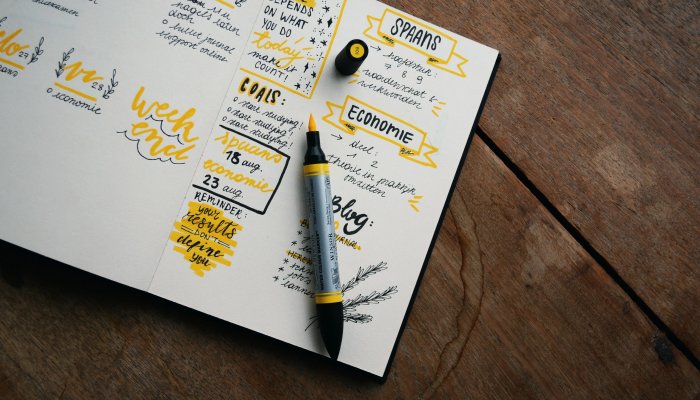 nagels laten
doen
bullet journal
support online
27
vr 28
economie
week
end
DEPENDS
ON WHAT
YOU DO
today
make it
COUNT!
GOALS:
start studying!
start studying!
start studying!
Spaans
18 aug.
economie
23 aug.
REMINDER:
your
results
DON'T
define
you
SPAANS
hoofdstuk:
7 8 9
woordenschat &
werkwoorden
ECONOMIE
deel:
1 2
theorie in praktijk
omzetten
Blog: